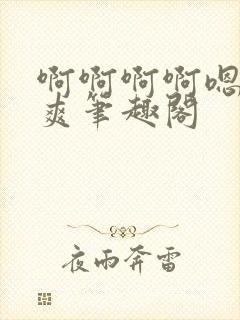 啊啊啊啊嗯
爽笔趣阁
夜雨奔雷